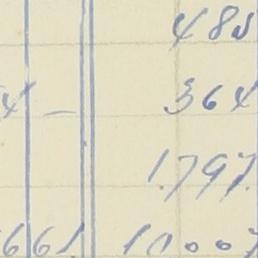 485
4 — 364
1797
661 10007